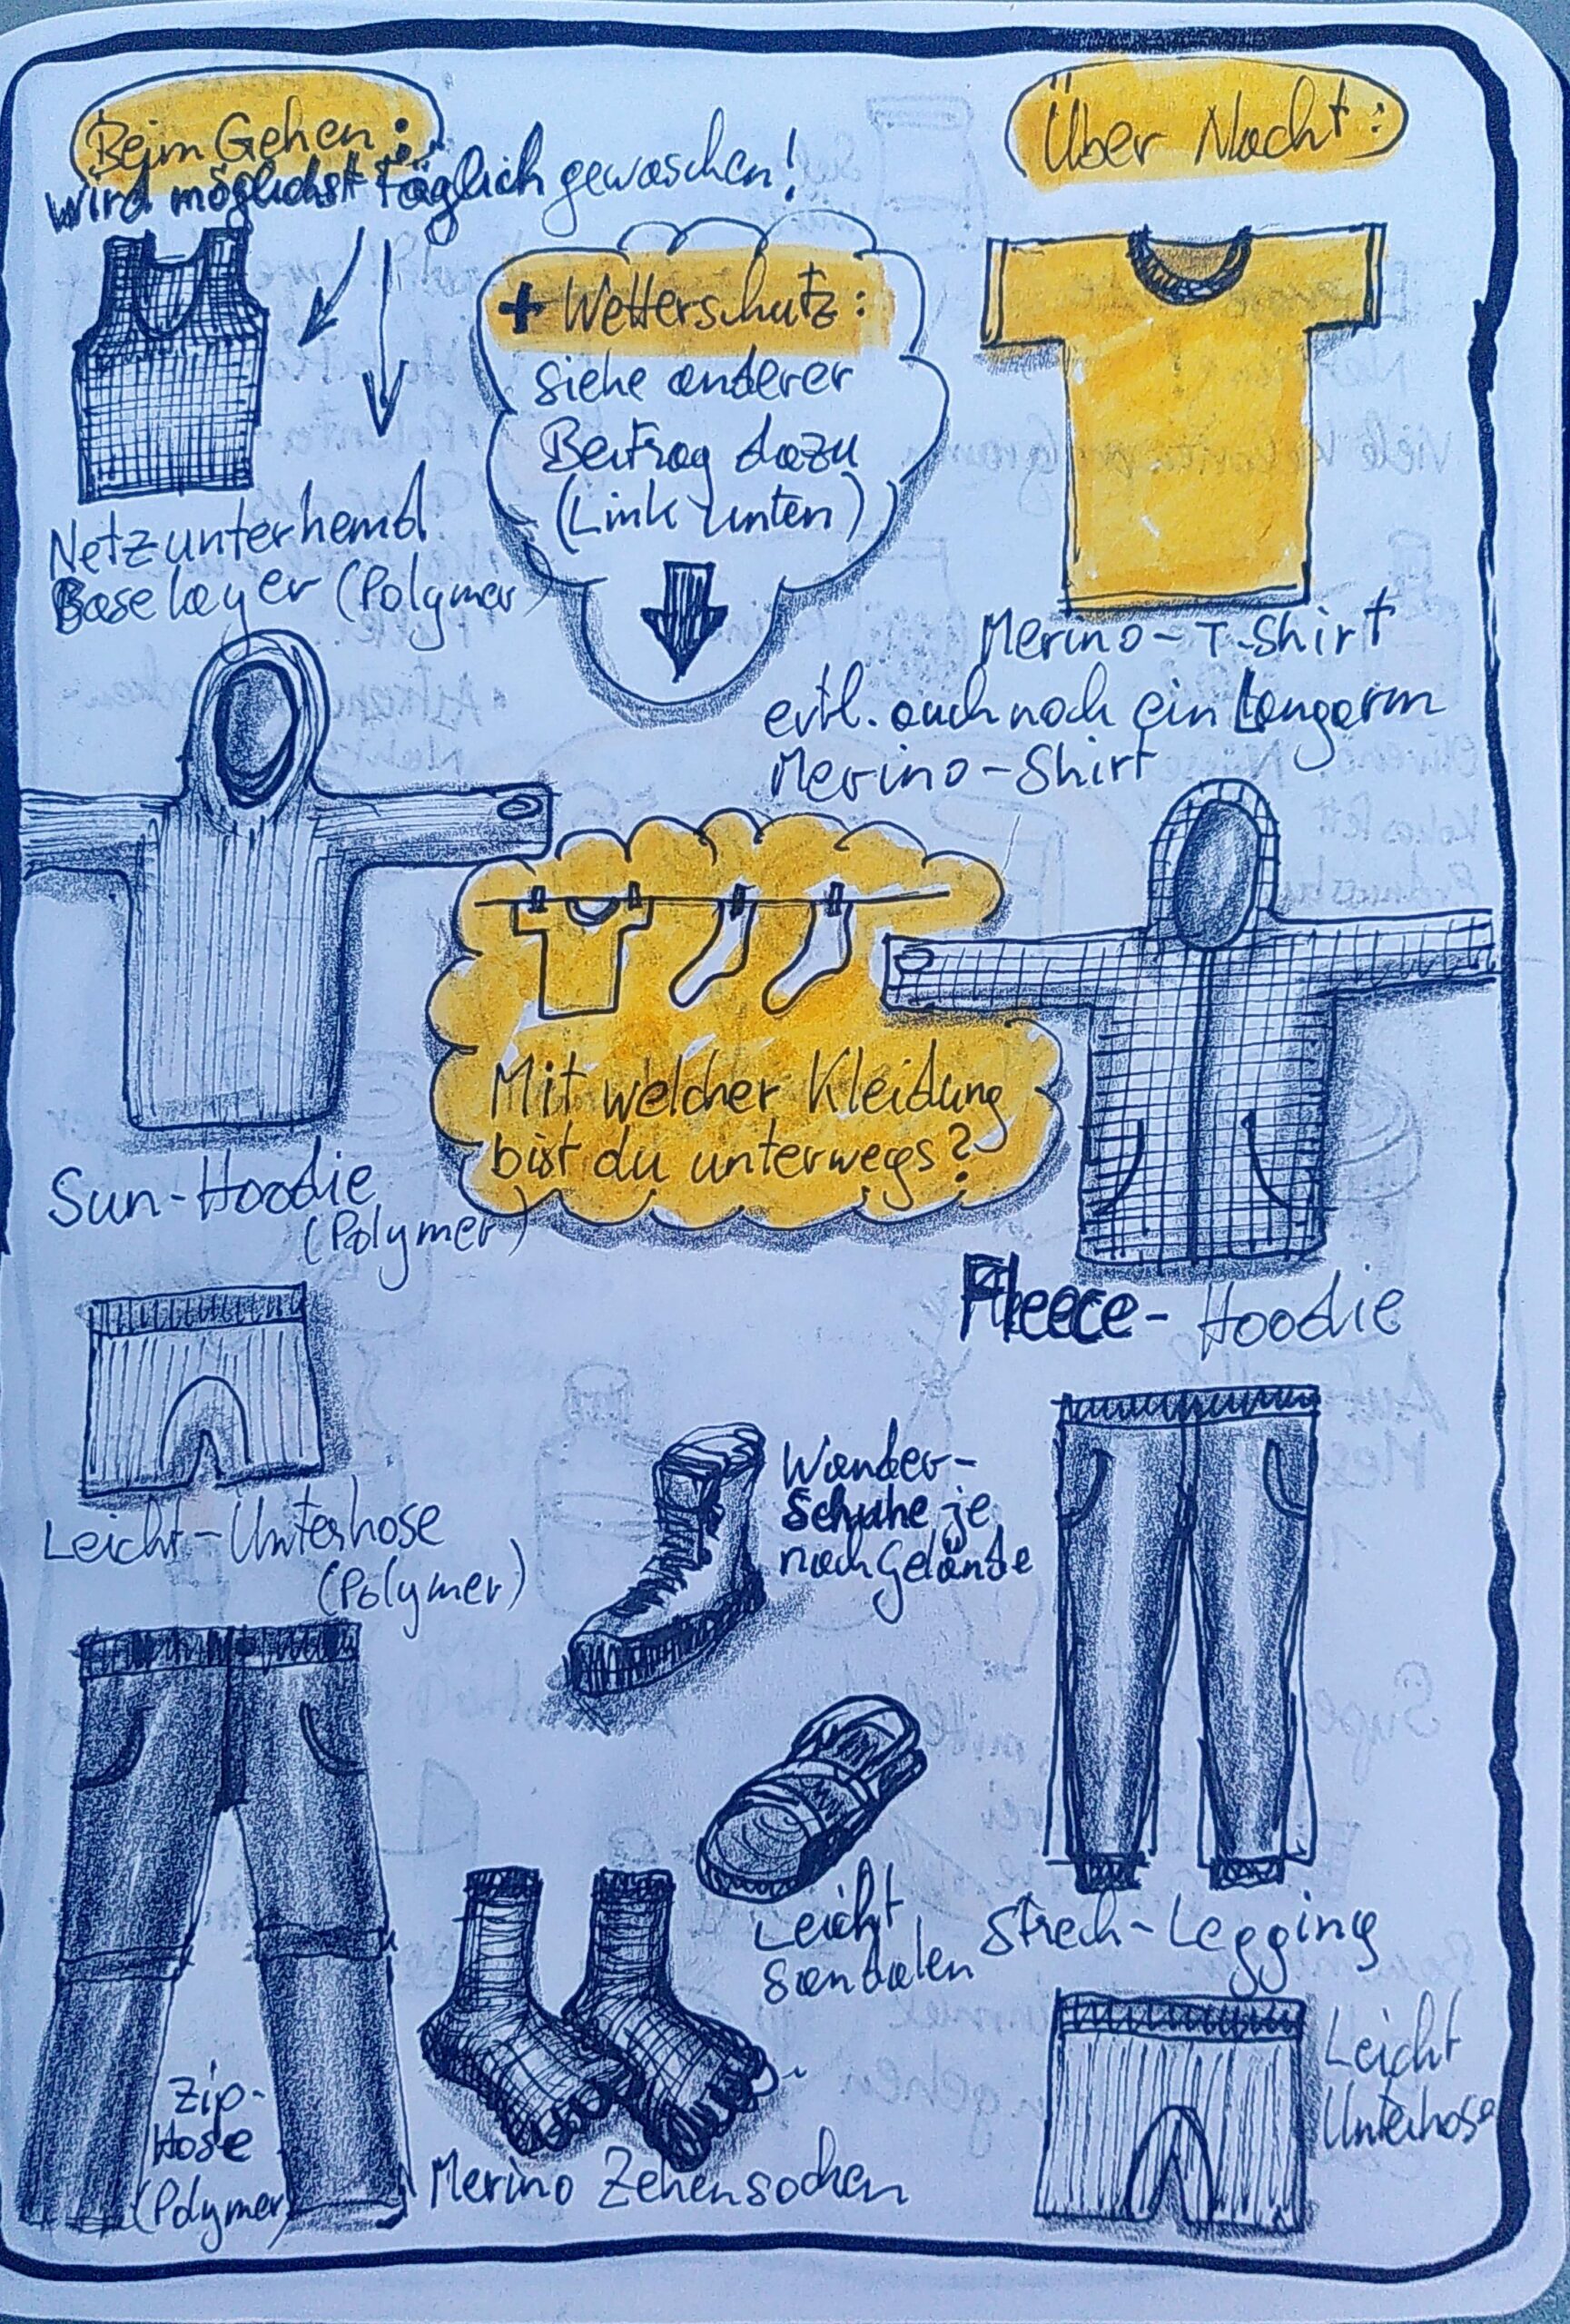 Beim Gehen:
wird möglichst täglich gewaschen!
Netzunterhemd
Baselayer (Polymer)
Sun-Hoodie
(Polymer)
Leicht-Unterhose
(Polymer)
Zip-
Hose
(Polymer)
+ Wetterschutz:
siehe anderer
Beitrag dazu
(Link unten)
Mit welcher Kleidung
bist du unterwegs?
Wander-
Schuhe je
nach Gelände
Leicht
Sandalen
Merino Zehensocken
Über Nacht:
Merino-T-Shirt
evtl. auch noch ein Langarm
Merino-Shirt
Fleece-Hoodie
Strech-Legging
Leicht
Unterhose